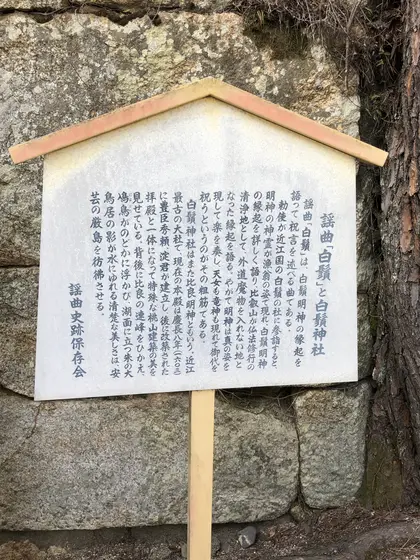 謡曲「白鬚」と白鬚神社
謡曲「白鬚」は、白鬚明神の縁起を
語って祝言を述べる曲である。
勅使が近江の国の白鬚の社に参詣すると、
明神の神霊が漁翁の姿で現れ、白鬚明神
の縁起を詳しく語り、比叡山が仏法修行の
清浄地として、外道魔物を入れない地と
なった縁起を語る。やがて明神は真の姿を
現して楽を奏し、天女も竜神も現れて御代を
祝うというのがその粗筋である。
白鬚神社はまた比良明神ともいう、近江
最古の大社で、現在の本殿は慶長八年(一六〇三)
に豊臣秀頼、淀君が建立し、後に改築された
拝殿と一体になって特殊な桃山建築の美を
見せている。背後に比良の遠峰をひかえ、
鳰鳥がのどかに浮かび、湖面に立つ朱の大
鳥居の影が水にゆれる清雅な美しさは、安
芸の厳島を彷彿させる。
謡曲史跡保存会